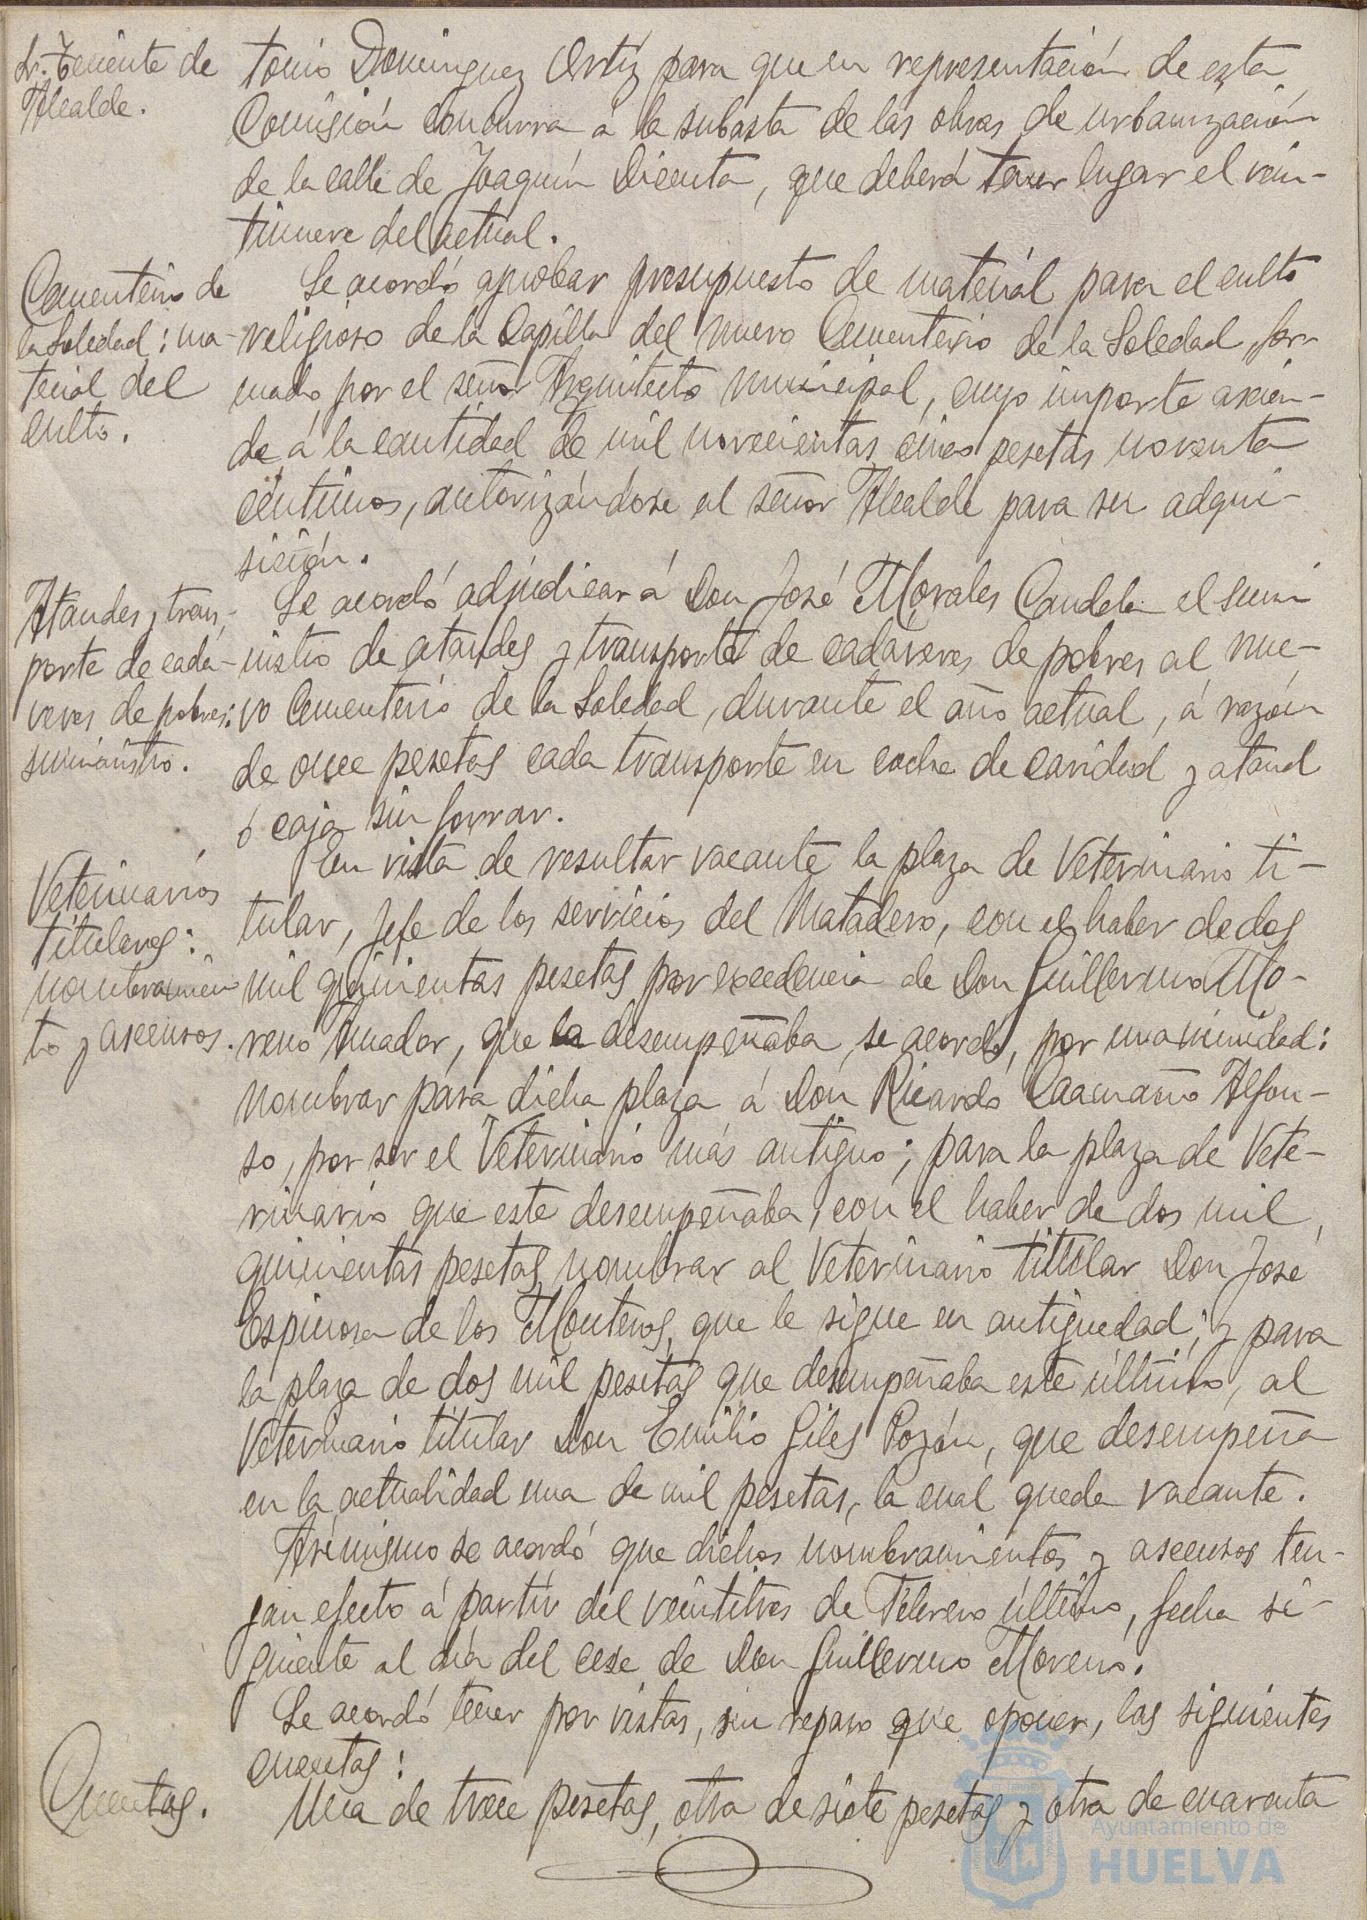 Sr. Teniente de
Alcalde.
tonio Dominguez Ortíz para que en representación de esta
Comisión concurra á la subasta de las obras de urbanización
de la calle de Joaquín Dicenta, que deberá tener lugar el vein-
tinueve del actual.
Cementerio de
la Soledad: ma-
terial del
culto.
Se acordó aprobar presupuesto de material para el culto
religioso de la Capilla del nuevo Cementerio de la Soledad, for-
mado por el señor Arquitecto municipal, cuyo importe ascien-
de á la cantidad de mil novecientas cinco pesetas noventa
céntimos, autorizándose al señor Alcalde para su adqui-
sición.
Ataudes y trans-
porte de cada-
veres de pobres:
suministro.
Se acordó adjudicar á Don José Morales Candela el sumi
nistro de ataudes y transporte de cadaveres de pobres al nue-
vo Cementerio de la Soledad, durante el año actual, á razón
de once pesetas cada transporte en coche de caridad y ataud
ó caja sin forrar.
Veterinarios
titulares:
nombramien
to y ascensos.
En vista de resultar vacante la plaza de Veterinario ti-
tular, Jefe de los servicios del Matadero, con el haber de dos
mil quinientas pesetas por excedencia de Don Guillermo Mo-
reno Amador, que la desempeñaba, se acordó, por unanimidad:
nombrar para dicha plaza á Don Ricardo Caamaño Alfon-
so, por ser el Veterinario más antiguo; para la plaza de Vete-
rinario que este desempeñaba, con el haber de dos mil
quinientas pesetas, nombrar al Veterinario titular Don José
Espinosa de los Monteros, que le sigue en antiguedad; y para
la plaza de dos mil pesetas que desempeñaba este último, al
Veterinario titular Don Emilio Giles Pozón, que desempeña
en la actualidad una de mil pesetas, la cual queda vacante.
Asímismo se acordó que dichos nombramientos y ascensos ten-
gan efecto á partír del veintitres de Febrero último, fecha si-
guiente al día del cese de Don Guillermo Moreno.
Se acordó tener por vistas, sin reparo que oponer, las siguientes
cuentas:
Cuentas.
Una de trece pesetas, otra de siete pesetas y otra de cuarenta
Ayuntamiento de
HUELVA